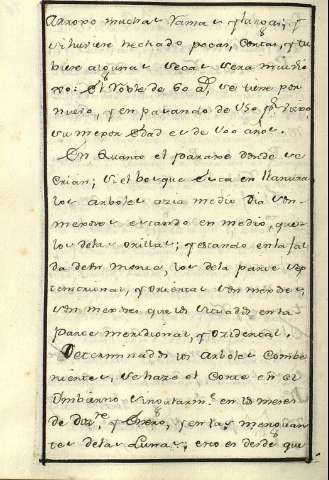 arroxo muchas ramas y largas, y
si huviere hechado pocas, cortas, y tu
biere algunas secas sera mui
El roble de 60 a.s se tiene por
nuevo, y en pasando de
su mexor edad es de 100 años.
En quanto el paraxe donde se
crian; si el bosque esta en llanura
los arboles azia medio dia son
mexores estando en medio, que
los delas orillas; y estando en la fal
da de un monte, los dela parte sep
temtrional, y oriental son mexores,
son mexores que los situados en la
parte meridional, y ozidental.
Determinados los arboles combe
nientes, se haze el corte en el
Imbierno singularm.e en los meses
de Diz.re y Enero, y en las menguan
tes dela Luna, esto es desde que